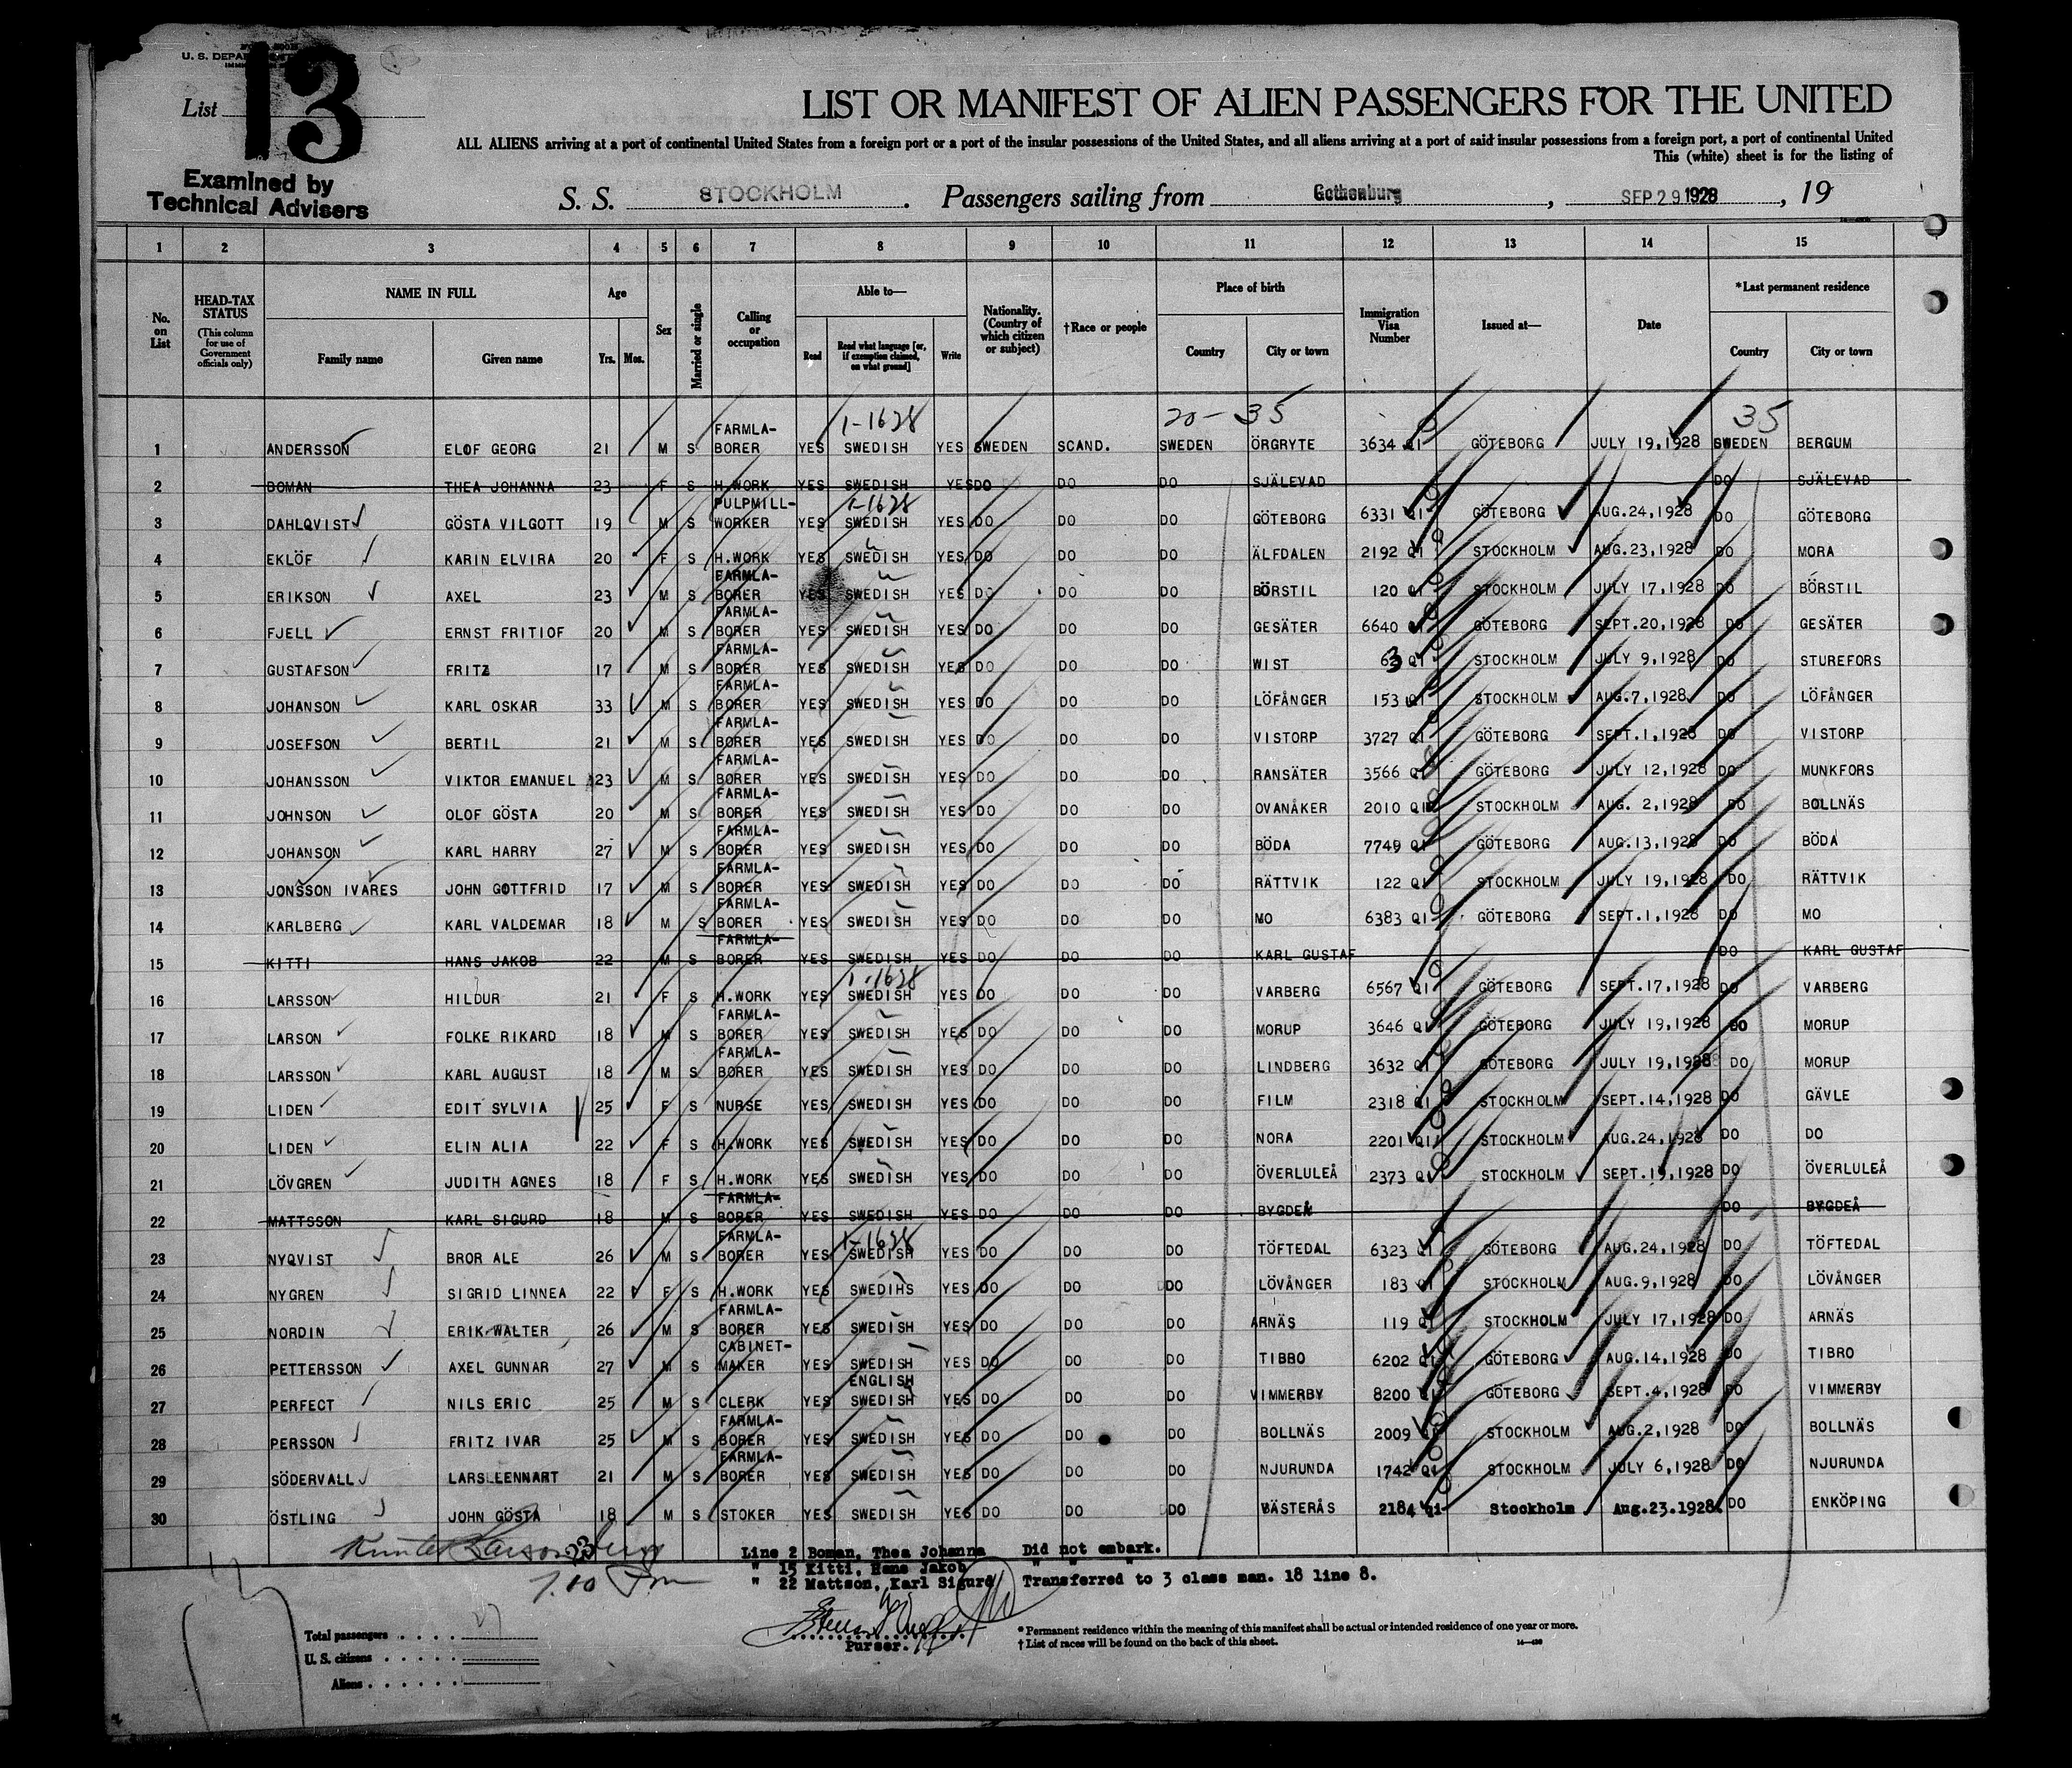 U. S. DEPA
List 13
Examined by
Technical Advisers
LIST OR MANIFEST OF ALIEN PASSENGERS FOR THE UNITED
ALL ALIENS arriving at a port of continental United States from a foreign port or a port of the insular possessions of the United States, and all aliens arriving at a port of said insular possessions from a foreign port, a port of continental United
This (white) sheet is for the listing of
S. S. STOCKHOLM. Passengers sailing from Gothenburg, SEP 29 1928, 19
1 2 3 4 5 6 7 8 9 10 11 12 13 14 15
No. on List
HEAD-TAX STATUS (This column for use of Government officials only)
NAME IN FULL Family name Given name
Age Yrs. Mos.
Sex
Married or single
Calling or occupation
Able to— Read Read what language [or, if exemption claimed, on what ground] Write
Nationality. (Country of which citizen or subject)
†Race or people
Place of birth Country City or town
Immigration Visa Number
Issued at—
Date
*Last permanent residence Country City or town
1-1628 20- 35 35
1 ANDERSSON ELOF GEORG 21 M S FARMLA-BORER YES SWEDISH YES SWEDEN SCAND. SWEDEN ÖRGRYTE 3634 QI GÖTEBORG JULY 19,1928 SWEDEN BERGUM
2 BOMAN THEA JOHANNA 23 F S H.WORK YES SWEDISH YES DO DO DO SJÄLEVAD DO SJÄLEVAD
1-1628
3 DAHLQVIST GÖSTA VILGOTT 19 M S PULPMILL-WORKER YES SWEDISH YES DO DO DO GÖTEBORG 6331 QI GÖTEBORG AUG.24,1928 DO GÖTEBORG
4 EKLÖF KARIN ELVIRA 20 F S H.WORK YES SWEDISH YES DO DO DO ÄLFDALEN 2192 QI STOCKHOLM AUG.23,1928 DO MORA
5 ERIKSON AXEL 23 M S FARMLA-BORER YES SWEDISH YES DO DO DO BÖRSTIL 120 QI STOCKHOLM JULY 17,1928 DO BÖRSTIL
6 FJELL ERNST FRITIOF 20 M S FARMLA-BORER YES SWEDISH YES DO DO DO GESÄTER 6640 QI GÖTEBORG SEPT.20,1928 DO GESÄTER
7 GUSTAFSON FRITZ 17 M S FARMLA-BORER YES SWEDISH YES DO DO DO WIST 63 QI STOCKHOLM JULY 9,1928 DO STUREFORS
8 JOHANSON KARL OSKAR 33 M S FARMLA-BORER YES SWEDISH YES DO DO DO LÖFÅNGER 153 QI STOCKHOLM AUG.7,1928 DO LÖFÅNGER
9 JOSEFSON BERTIL 21 M S FARMLA-BORER YES SWEDISH YES DO DO DO VISTORP 3727 QI GÖTEBORG SEPT.1,1928 DO VISTORP
10 JOHANSSON VIKTOR EMANUEL 23 M S FARMLA-BORER YES SWEDISH YES DO DO DO RANSÄTER 3566 QI GÖTEBORG JULY 12,1928 DO MUNKFORS
11 JOHNSON OLOF GÖSTA 20 M S FARMLA-BORER YES SWEDISH YES DO DO DO OVANÅKER 2010 QI STOCKHOLM AUG. 2,1928 DO BOLLNÄS
12 JOHANSON KARL HARRY 27 M S FARMLA-BORER YES SWEDISH YES DO DO DO BÖDA 7749 QI GÖTEBORG AUG.13,1928 DO BÖDA
13 JONSSON IVARES JOHN GOTTFRID 17 M S FARMLA-BORER YES SWEDISH YES DO DO DO RÄTTVIK 122 QI STOCKHOLM JULY 19,1928 DO RÄTTVIK
14 KARLBERG KARL VALDEMAR 18 M S FARMLA-BORER YES SWEDISH YES DO DO DO MO 6383 QI GÖTEBORG SEPT.1,1928 DO MO
15 KITTI HANS JAKOB 22 M S FARMLA-BORER YES SWEDISH YES DO DO DO KARL GUSTAF DO KARL GUSTAF
1-1628
16 LARSSON HILDUR 21 F S H.WORK YES SWEDISH YES DO DO DO VARBERG 6567 QI GÖTEBORG SEPT.17,1928 DO VARBERG
17 LARSON FOLKE RIKARD 18 M S FARMLA-BORER YES SWEDISH YES DO DO DO MORUP 3646 QI GÖTEBORG JULY 19,1928 DO MORUP
18 LARSSON KARL AUGUST 18 M S FARMLA-BORER YES SWEDISH YES DO DO DO LINDBERG 3632 QI GÖTEBORG JULY 19,1928 DO MORUP
19 LIDEN EDIT SYLVIA 25 F S NURSE YES SWEDISH YES DO DO DO FILM 2318 QI STOCKHOLM SEPT.14,1928 DO GÄVLE
20 LIDEN ELIN ALIA 22 F S H.WORK YES SWEDISH YES DO DO DO NORA 2201 QI STOCKHOLM AUG.24,1928 DO DO
21 LÖVGREN JUDITH AGNES 18 F S H.WORK YES SWEDISH YES DO DO DO ÖVERLULEÅ 2373 QI STOCKHOLM SEPT.19,1928 DO ÖVERLULEÅ
22 MATTSSON KARL SIGURD 18 M S FARMLA-BORER YES SWEDISH YES DO DO DO BYGDEÅ DO BYGDEÅ
1-1628
23 NYQVIST BROR ALE 26 M S FARMLA-BORER YES SWEDISH YES DO DO DO TÖFTEDAL 6323 QI GÖTEBORG AUG.24,1928 DO TÖFTEDAL
24 NYGREN SIGRID LINNEA 22 F S H.WORK YES SWEDIHS YES DO DO DO LÖVÅNGER 183 QI STOCKHOLM AUG.9,1928 DO LÖVÅNGER
25 NORDIN ERIK WALTER 26 M S FARMLA-BORER YES SWEDISH YES DO DO DO ARNÄS 119 QI STOCKHOLM JULY 17,1928 DO ARNÄS
26 PETTERSSON AXEL GUNNAR 27 M S CABINET-MAKER YES SWEDISH YES DO DO DO TIBBO 6202 QI GÖTEBORG AUG.14,1928 DO TIBRO
27 PERFECT NILS ERIC 25 M S CLERK YES ENGLISH SWEDISH YES DO DO DO VIMMERBY 8200 QI GÖTEBORG SEPT.4,1928 DO VIMMERBY
28 PERSSON FRITZ IVAR 25 M S FARMLA-BORER YES SWEDISH YES DO DO DO BOLLNÄS 2009 QI STOCKHOLM AUG.2,1928 DO BOLLNÄS
29 SÖDERVALL LARS LENNART 21 M S FARMLA-BORER YES SWEDISH YES DO DO DO NJURUNDA 1742 QI STOCKHOLM JULY 6,1928 DO NJURUNDA
30 ÖSTLING JOHN GÖSTA 18 M S STOKER YES SWEDISH YES DO DO DO VÄSTERÅS 2184 QI Stockholm Aug.23.1928. DO ENKÖPING
Line 2 Boman, Thea Johanna Did not embark.
" 15 Kitti, Hans Jakob " " "
" 22 Mattson, Karl Sigurd Transferred to 3 class man. 18 line 8.
7.10 Pm
Purser.
Total passengers 27
U. S. citizens
Aliens
* Permanent residence within the meaning of this manifest shall be actual or intended residence of one year or more.
† List of races will be found on the back of this sheet.